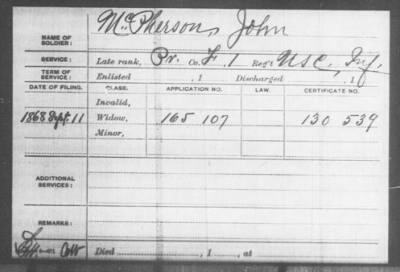 NAME OF SOLDIER: McPherson, John
SERVICE: Late rank, Pr. Co. F, 1 Reg't U.S.C. Inf.
TERM OF SERVICE: Enlisted , 1 Discharged , 1
DATE OF FILING. CLASS. APPLICATION NO. LAW. CERTIFICATE NO.
Invalid,
1868 Sept. 11 Widow, 165 107 130 539
Minor,
ADDITIONAL SERVICES:
REMARKS:
Died , 1 , at